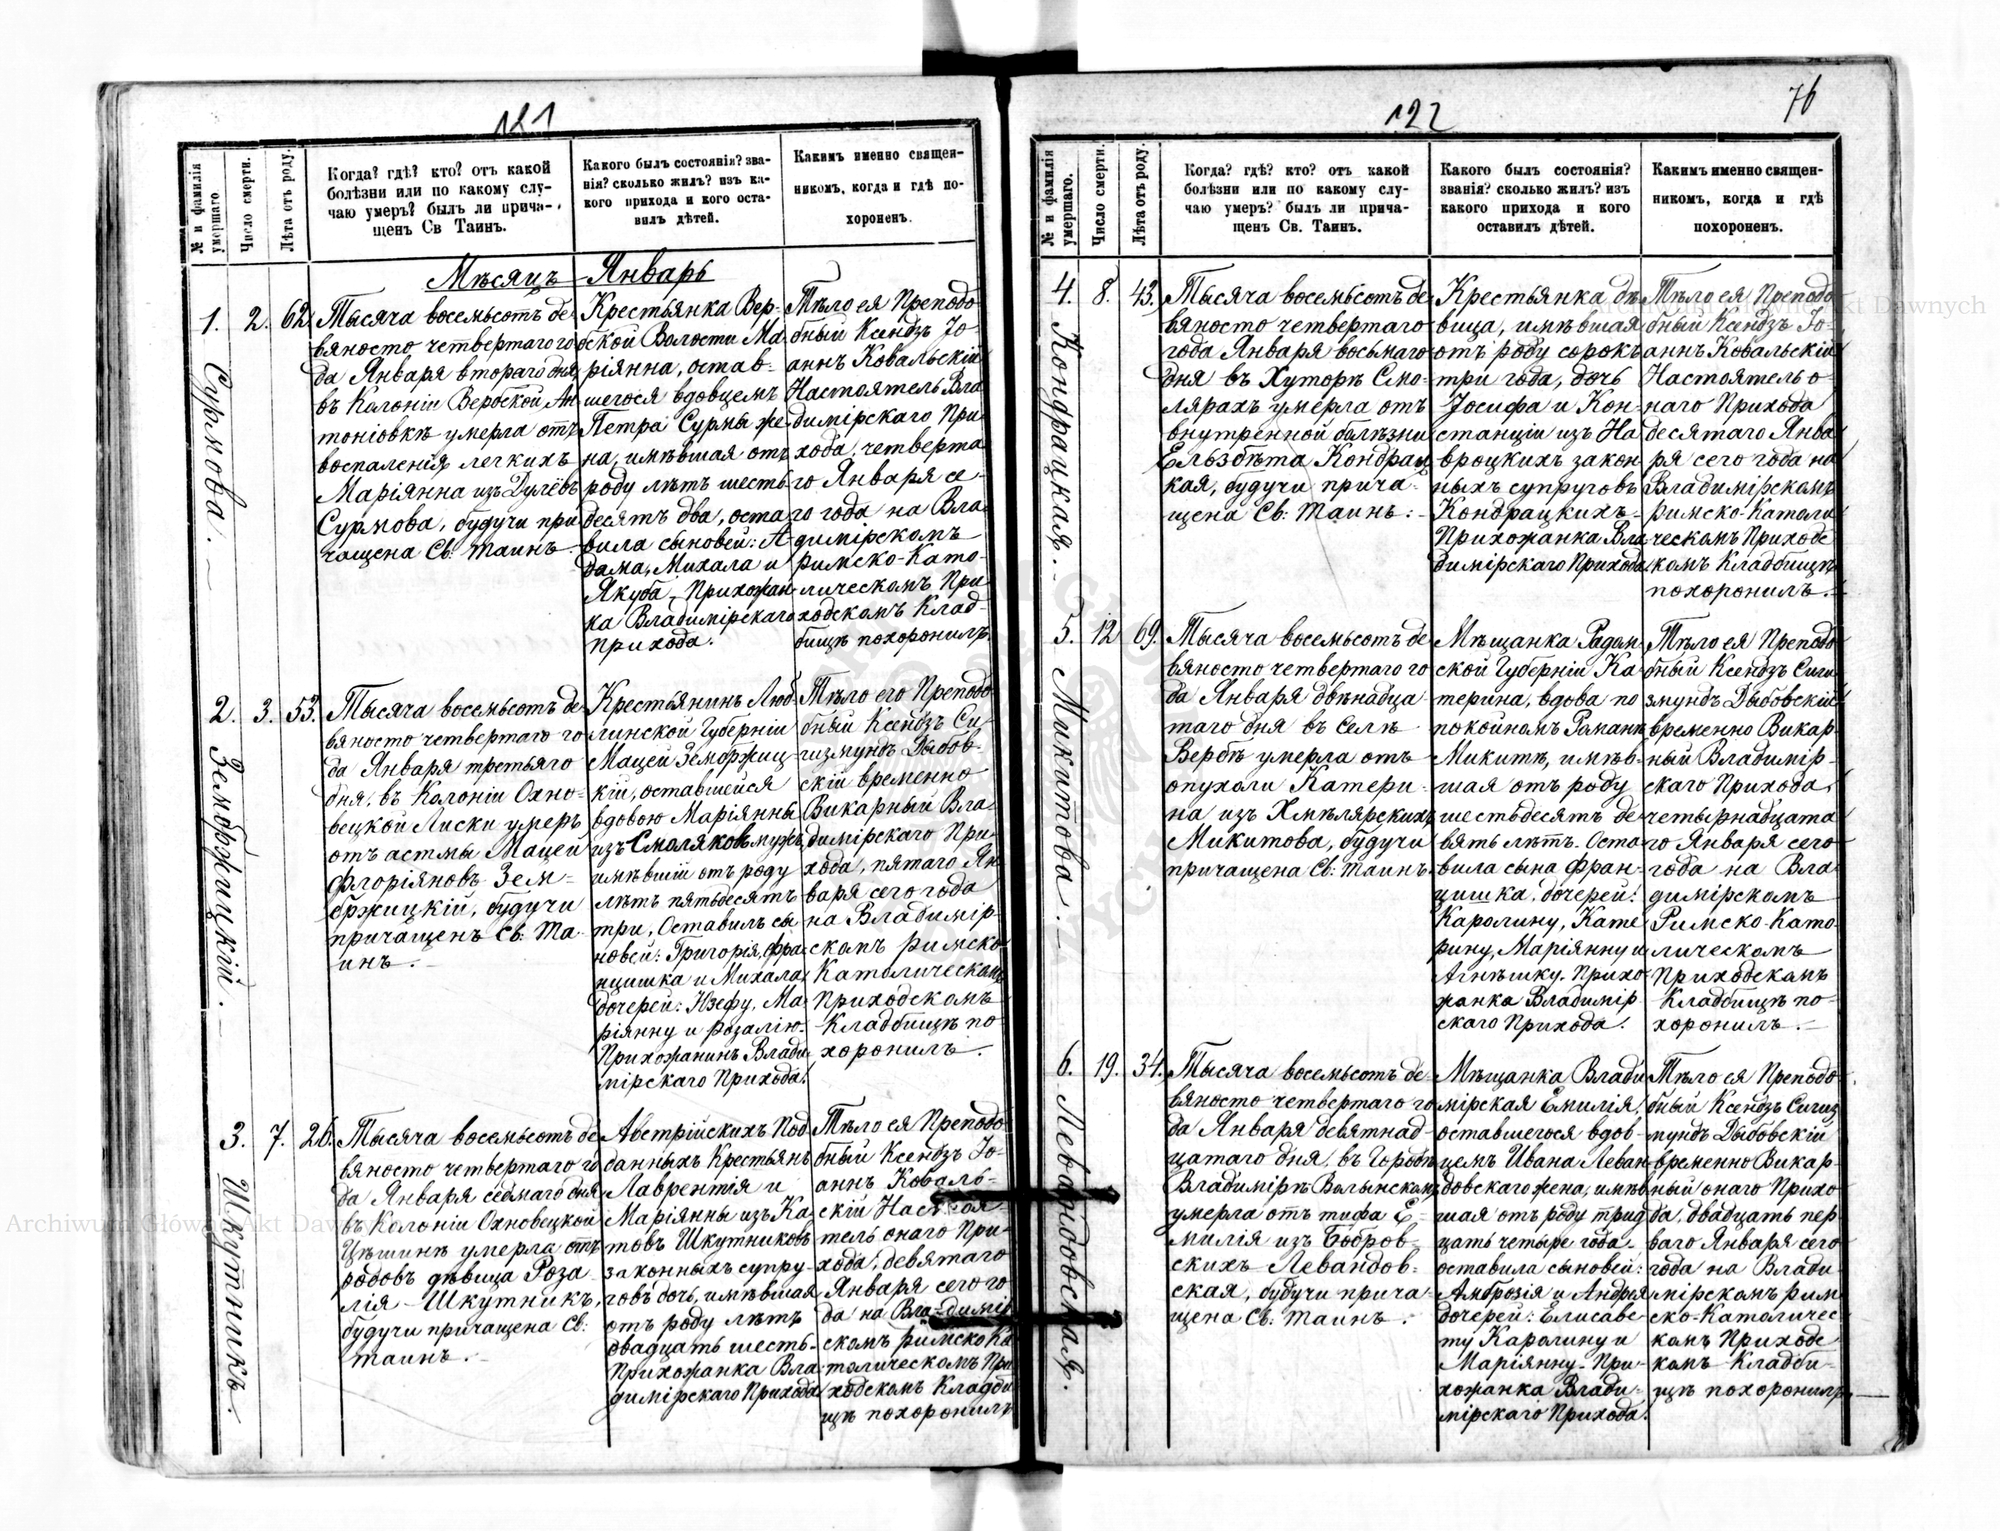 121
№ и фамилія умершаго
Число смерти.
Лѣта отъ роду.
Когда? гдѣ? кто? отъ какой
болѣзни или по какому слу-
чаю умеръ? былъ ли прича-
щенъ Св Таинъ.
Какого былъ состоянія? зва-
нія? сколько жилъ? изъ ка-
кого прихода и кого оста-
вилъ дѣтей.
Какимъ именно священ-
никомъ, когда и гдѣ по-
хороненъ.
Мѣсяцъ Январь
1. Сурмова.
2.
62.
Тысяча восемьсотъ де
вяносто четвертаго го
да Января втораго дня
въ Колоніи Вербской Ан
тоніовкѣ умерла отъ
воспаленія легкихъ
Маріянна изъ Дулёвъ
Сурмова, будучи при
чащена Св: таинъ.
Крестьянка Вер-
бской Волости Ма
ріянна, остав-
шегося вдовцемъ
Петра Сурмы же
на, имѣвшая отъ
роду лѣтъ шесть-
десятъ два, оста
вила сыновей: А-
дама, Михала и
Якуба, Прихожан-
ка Владимірскаго
прихода.
Тѣло ея Преподо
бный Ксендзъ Іо-
аннъ Ковальскій
Настоятель Вла
димірскаго При
хода, четверта
го Января се-
го года на Вла
димірскомъ
римско-Като-
лическомъ При
ходскомъ Клад-
бищѣ похоронилъ
2. Зембржицкій.
3.
53.
Тысяча восемьсотъ де
вяносто четвертаго го
да Января третьяго
дня, въ Колоніи Охно-
вецкой Лиски умеръ
отъ астмы Мацей
Флоріяновъ Зем-
бржицкій, будучи
причащенъ Св: Та-
инъ.
Крестьянинъ Люб
линской Губерніи
Мацей Земbржиц-
кій, оставшейся
вдовою Маріянны
изъ Смоляковъ мужъ,
имѣвшій отъ роду
лѣтъ пятьдесятъ
три, Оставилъ сы
новей: Григорія, Фра-
нцишка и Михала,
дочерей: Юзефу, Ма-
ріянну и розалію.
Прихожанинъ Влади-
мірскаго Прихода.
Тѣло его Преподо
бный Ксендзъ Си
гизмундъ Дыбов-
скій временно
Викарный Вла
димірскаго При
хода, пятаго Ян
варя сего года
на Владимір-
скомъ римско
Католическомъ
Приходскомъ
Кладбищѣ по
хоронилъ.
3. Шкутникъ.
7.
26.
Тысяча восемьсотъ де
вяносто четвертаго го
да Января седмаго дня
въ Колоніи Охновецкой
Цѣшинѣ умерла отъ
родовъ дѣвица Роза
лія Шкутникъ,
будучи причащена Св:
таинъ.
Австрійскихъ Под
данныхъ Крестьянъ
Лаврентія и
Маріянны изъ Ка
товъ Шкутниковъ
законныхъ супру-
говъ дочь, имѣвшая
отъ роду лѣтъ
двадцать шесть-
Прихожанка Вла
димірскаго Прихода
Тѣло ея Преподо
бный Ксендзъ Іо-
аннъ Коваль-
скій Настоя
тель онаго При-
хода, девятаго
Января сего го
да на Вла-димір
скомъ римско Ка
толическомъ При
ходскомъ Кладби
щѣ похоронилъ
122
76
№ и фамилія умершаго.
Число смерти.
Лѣта отъ роду.
Когда? гдѣ? кто? отъ какой
болѣзни или по какому слу-
чаю умеръ? былъ ли прича-
щенъ Св. Таинъ.
Какого былъ состоянія?
званія? сколько жилъ? изъ
какого прихода и кого
оставилъ дѣтей.
Какимъ именно священ-
никомъ, когда и гдѣ
похороненъ.
4. Кондрацкая.
8.
43.
Тысяча восемьсотъ де
вяносто четвертаго
года Января восьмаго
дня въ Хуторѣ Смо-
лярахъ умерла отъ
внутренной болѣзни
Ельзбѣта Кондрац
кая, будучи прича-
щена Св: таинъ.
Крестьянка дѣ
вица, имѣвшая
отъ роду сорокъ
три года, дочь
Іосифа и Кон-
станціи изъ На
вроцкихъ закон
ныхъ супруговъ
Кондрацкихъ-
Прихожанка Вла
димірскаго Прихода
Тѣло ея Преподо
бный Ксендзъ Іо-
аннъ Ковальскій
Настоятель о-
наго Прихода
десятаго Янва
ря сего года на
Владимірскомъ
римско-Католи
ческомъ Приход
скомъ Кладбищѣ
похоронилъ.
5. Микитова.
12
69.
Тысяча восемьсотъ де
вяносто четвертаго го
да Января двѣнадца-
таго дня въ Селѣ
Вербѣ умерла отъ
опухоли Катери-
на изъ Хмѣлярскихъ
Микитова, будучи
причащена Св: таинъ.
Мѣщанка Радом
ской Губерніи Ка
терина, вдова по
покойномъ Романѣ
Микитѣ, имѣв-
шая отъ роду
шестьдесятъ де
вять лѣтъ. Оста
вила сына Фран-
цишка, дочерей:
Каролину, Кате
рину, Маріянну и
Агнѣшку. Прихо
жанка Владимір
скаго Прихода.
Тѣло ея Преподо
бный Ксендзъ Сиги
змундъ Дыбовскій
временно Викар-
ный Владимір-
скаго Прихода,
четырнадцата
го Января сего
года на Вла
димірскомъ
Римско-Като-
лическомъ
Приходскомъ
Кладбищѣ по-
хоронилъ.
6. Левандовская.
19.
34.
Тысяча восемьсотъ де
вяносто четвертаго го
да Января девятнад-
цатаго дня, въ Городѣ
Владимірѣ Волынскомъ
умерла отъ тифа Е-
милія изъ Бобров-
скихъ Левандов-
ская, будучи прича-
щена Св: таинъ.
Мѣщанка Влади
мірская Емилія,
оставшегося вдов-
цемъ Ивана Леван
довскаго жена, имѣв
шая отъ роду трид
цать четыре года.
оставила сыновей:
Амброзія и Андрея
дочерей: Елисаве-
ту Каролину и
Маріянну. При-
хожанка Влади-
мірскаго Прихода.
Тѣло ея Преподо
бный Ксендзъ Сигиз
мундъ Дыбовскій
временно Викар-
ный онаго Прихо
да, двадцать пер-
ваго Января сего
года на Влади-
мірскомъ рим
ско-Католичес
комъ Приходс
комъ Кладби-
щѣ похоронилъ.
Archiwum Główne Akt Dawnych